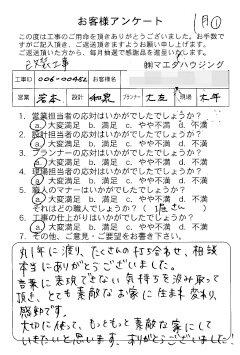 お客様アンケート
1月①
この度は工事のご用命を頂きありがとうございました。お手数で
すがご記入頂き、ご返送頂きますようお願い申し上げます。
ご返送頂いた方から、毎月抽選で感謝品を進呈
改装工事
㈱マエダハウジング
工事ID 006-00452 お客様名
営業 若本 設計 和泉 プランナー 大左 現場 大年
1. 営業担当者の応対はいかがでしたでしょうか?
a. 大変満足 b. 満足 c. やや不満 d. 不満
2. 設計担当者の応対はいかがでしたでしょうか?
a. 大変満足 b. 満足 c. やや不満 d. 不満
3. プランナーの応対はいかがでしたでしょうか?
a. 大変満足 b. 満足 c. やや不満 d. 不満
4. 現場担当者の応対はいかがでしたでしょうか?
a. 大変満足 b. 満足 c. やや不満 d. 不満
5. 職人のマナーはいかがでしたでしょうか?
それはどの職人でしょうか?
a. 大変満足 b. 満足 c. やや不満 d. 不満
6. 工事の仕上がりはいかがでしたでしょうか?
a. 大変満足 b. 満足 c. やや不満 d. 不満
7. その他、ご意見・ご要望をお書き下さい。
丸1年に渡り、たくさんの打ち合わせ、相談
本当にありがとうございました。
言葉に表現できない気持ちを汲み取って
頂き、とても素敵なお家に生まれ変わり、
感動です。
大切に使って、もっともっと素敵なお家にして
いきたいと思います。ありがとうございました!